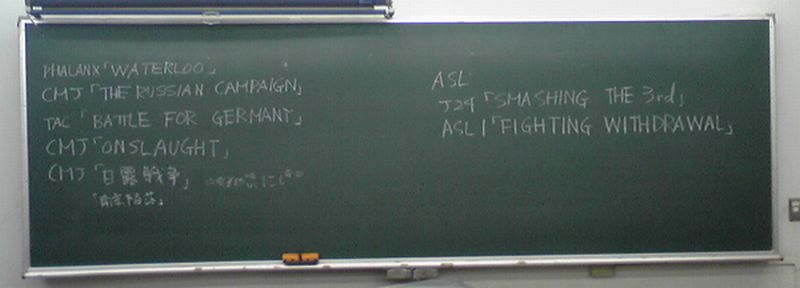 PHALANX「WATERLOO」
CMJ「THE RUSSIAN CAMPAIGN」
TAC「BATTLE FOR GERMANY」
CMJ「ONSLAUGHT」
CMJ「日露戦争」
ASL
J24「SMASHING THE 3rd」
ASL1「FIGHTING WITHDRAWAL」